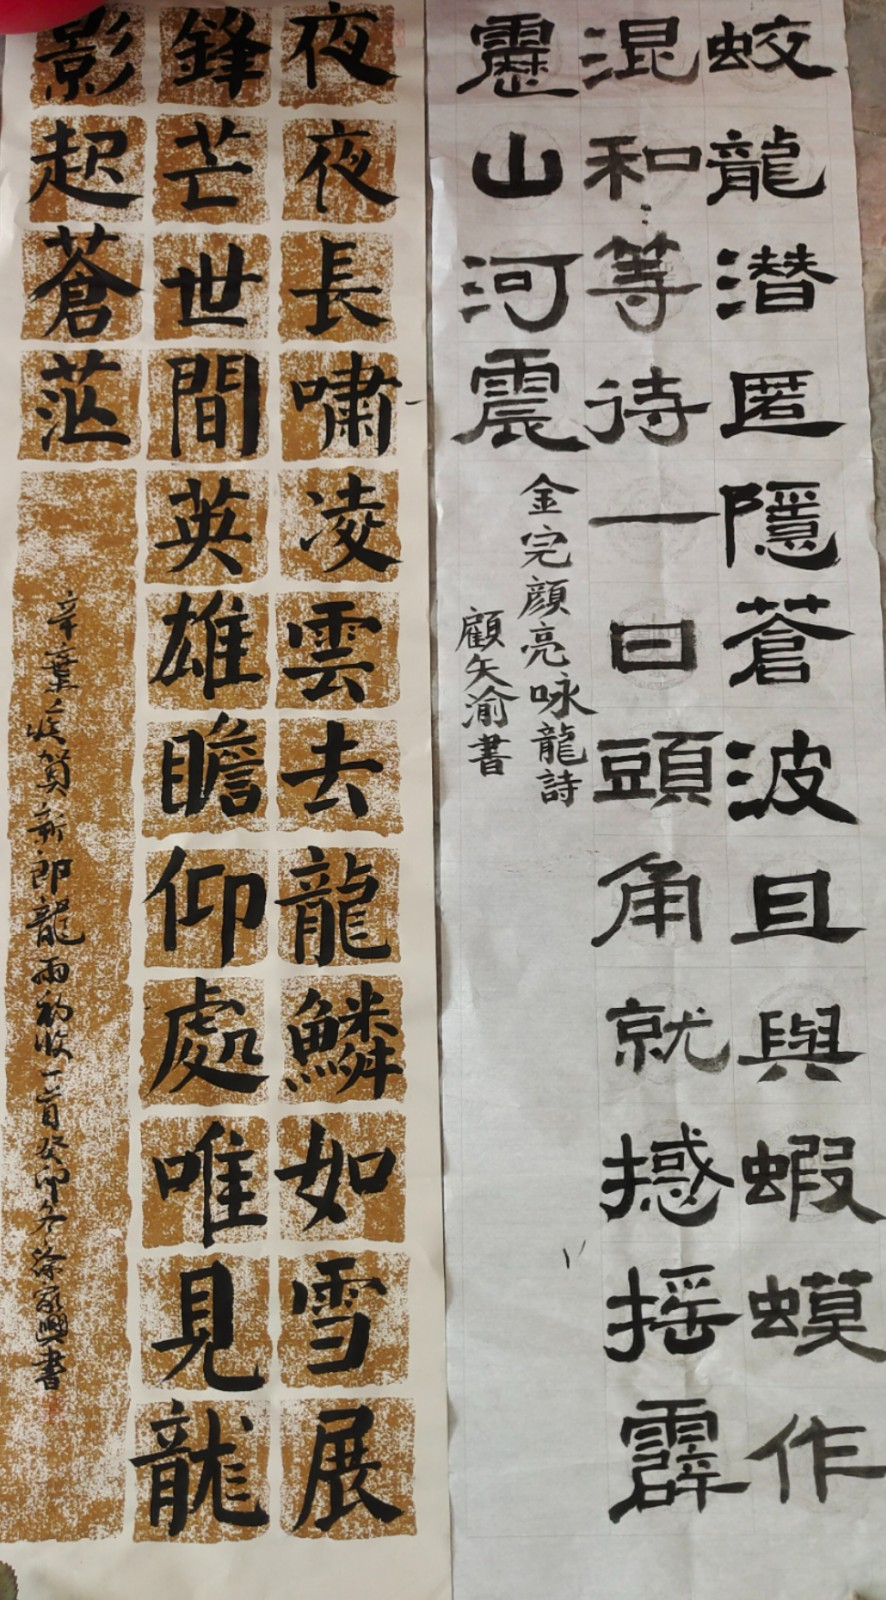 蛟龍潜匿隱蒼波且與蝦蟆作
混和等待一日頭角就撼摇霹
靂山河震
金完顔亮咏龍詩
顧矢渝書
夜夜長嘯凌雲去龍鱗如雪展
鋒芒世間英雄瞻仰處唯見龍
影起蒼茫
辛棄疾賀新郎龍雨初收一首癸卯冬徐
書